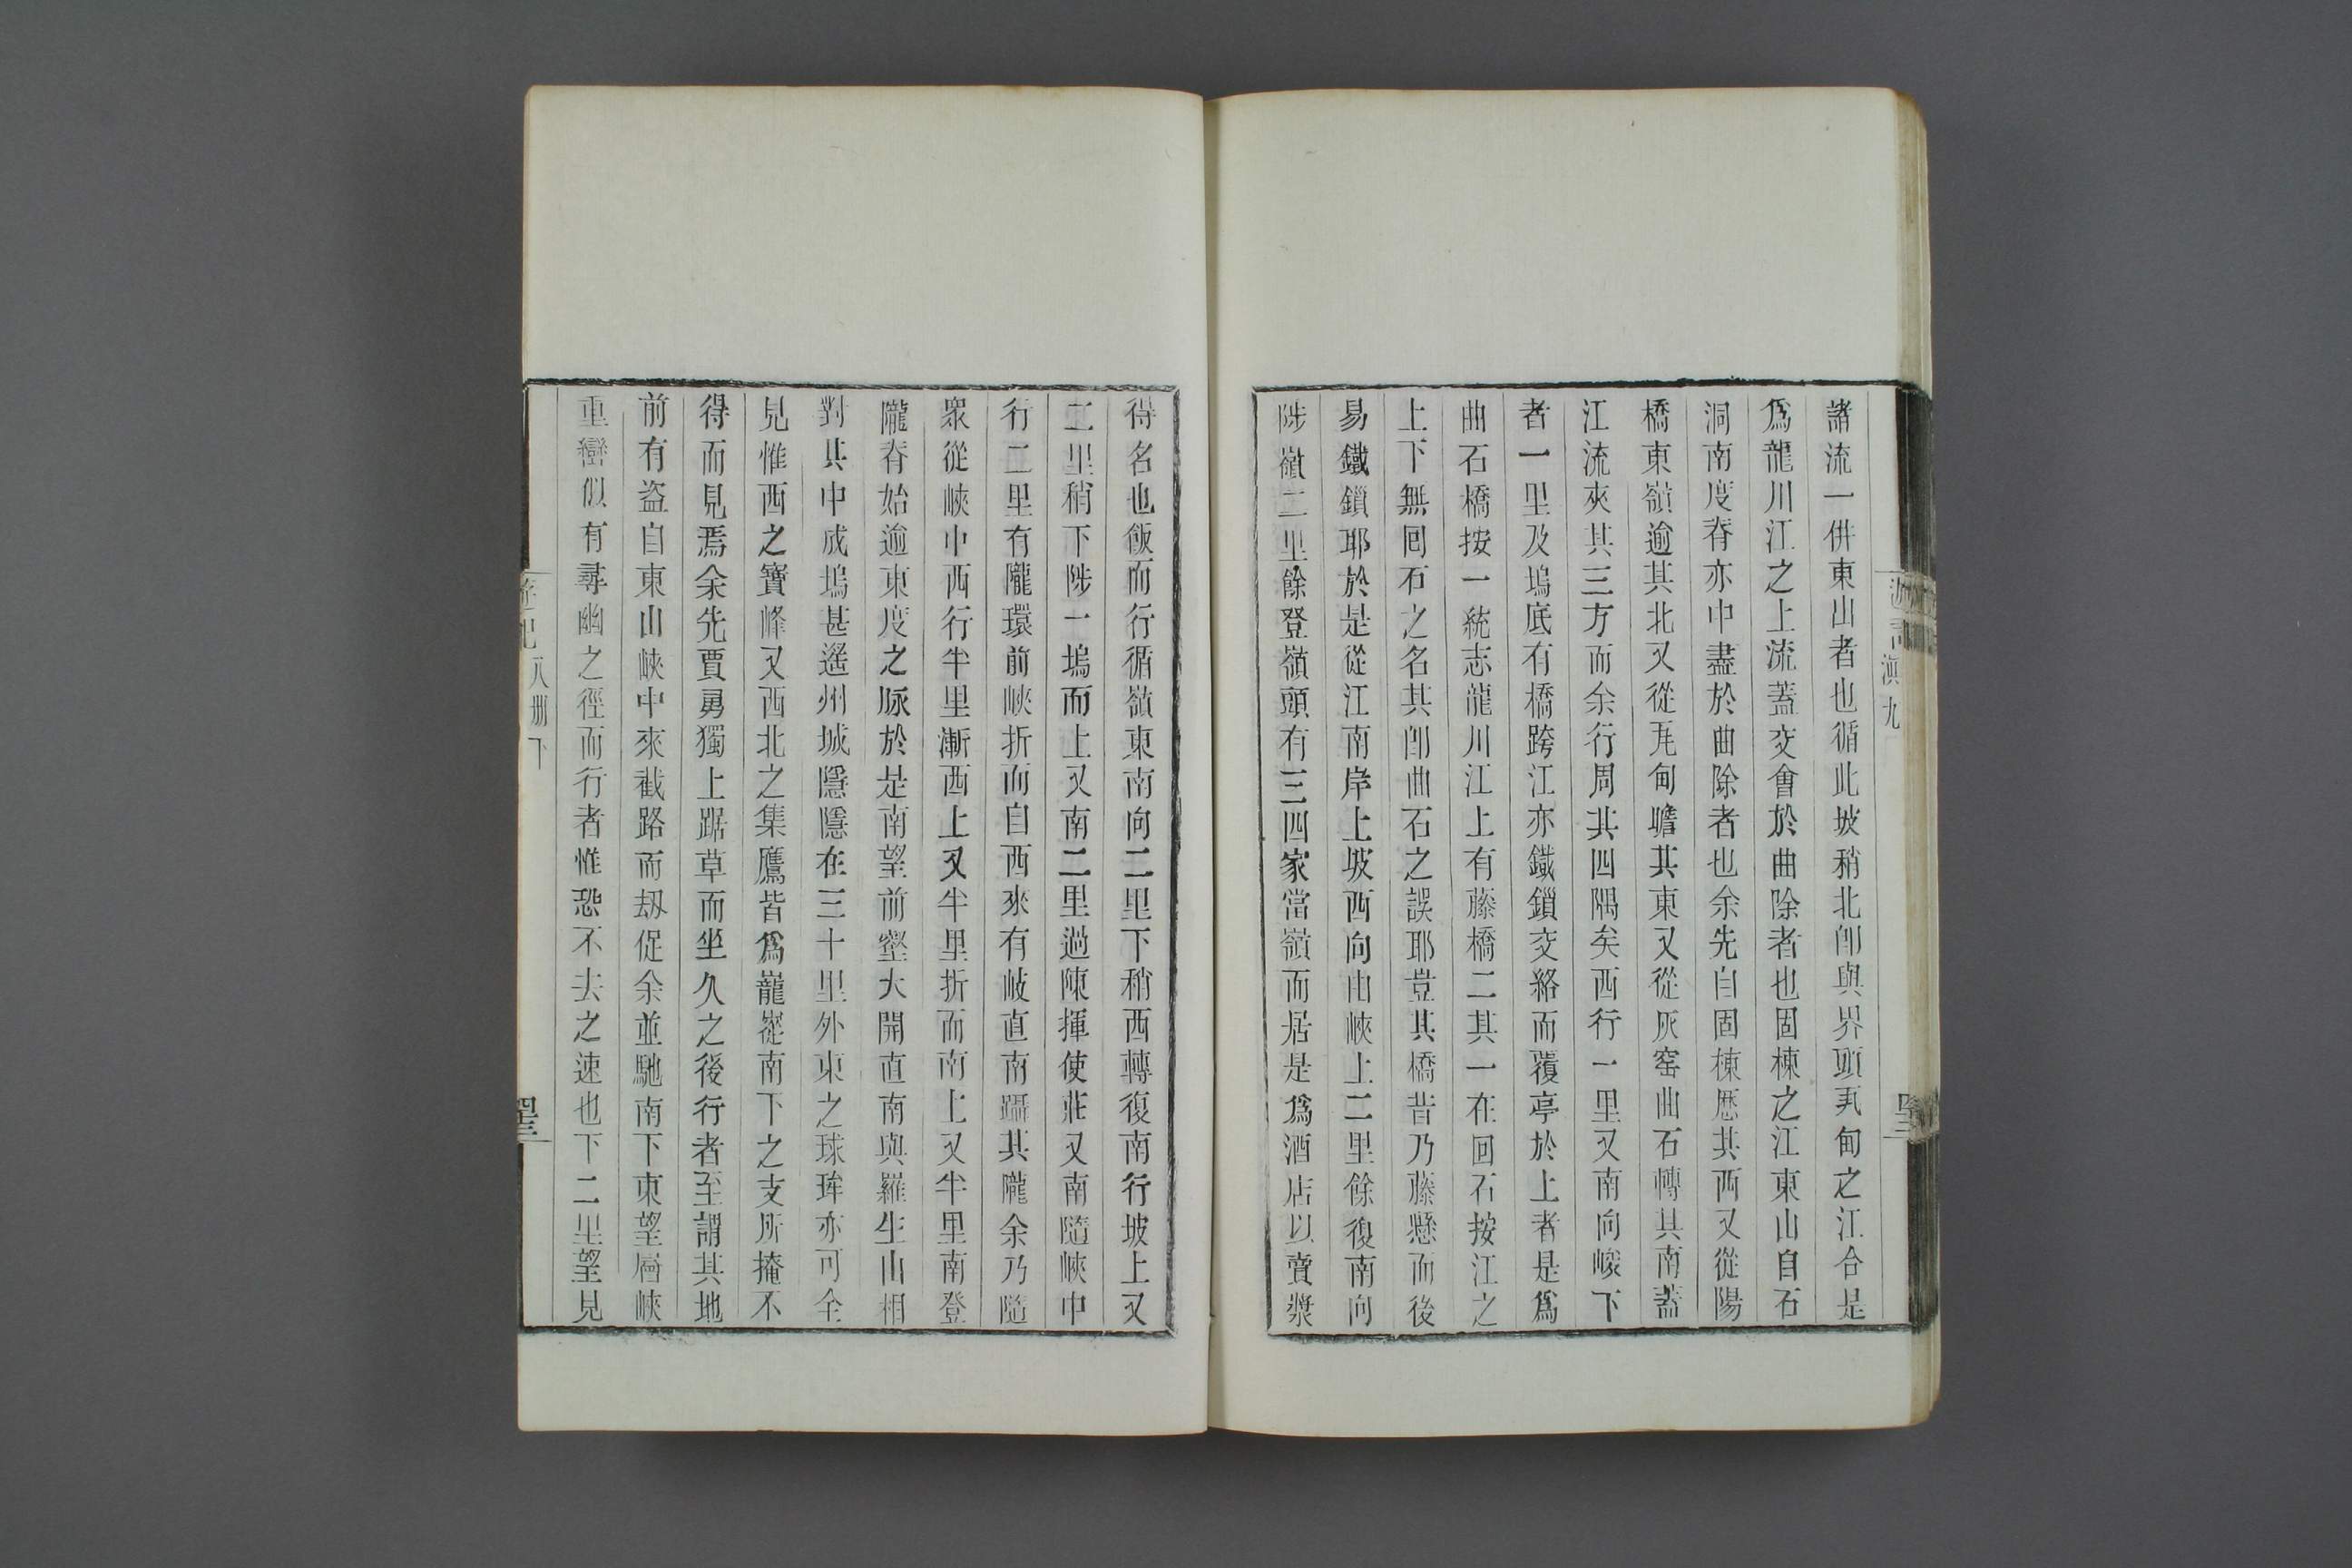 諸流一併東出者也循此坡稍北卽與界頭瓦甸之江合是
爲龍川江之上流蓋交會於曲除者也固棟之江東山自石
洞南度脊亦中盡於曲除者也余先自固棟歷其西又從陽
橋東嶺逾其北又從瓦甸瞻其東又從灰窑曲石轉其南蓋
江流夾其三方而余行周其四隅矣西行一里又南向峻下
者一里及塢底有橋跨江亦鐵鎖交絡而覆亭於上者是爲
曲石橋按一統志龍川江上有藤橋二其一在回石按江之
上下無回石之名其卽曲石之誤耶豈其橋昔乃藤懸而後
易鐵鎖耶於是從江南岸上坡西向由峽上二里餘復南向
陟嶺二里餘登嶺頭有三四家當嶺而居是爲酒店以賣漿
得名也飯而行循嶺東南向二里下稍西轉復南行坡上又
二里稍下陟一塢而上又南二里過陳揮使莊又南隨峽中
行二里有隴環前峽折而自西來有岐直南躡其隴余乃隨
衆從峽中西行半里漸西上又半里折而南上又半里南登
隴脊始逾東度之脉於是南望前壑大開直南與羅生山相
對其中成塢甚遙州城隱隱在三十里外東之球㻦亦可全
見惟西之寶峰又西北之集鷹皆爲巃嵷南下之支所掩不
得而見焉余先賈勇獨上踞草而坐久之後行者至謂其地
前有盜自東山峽中來截路而刼促余並馳南下東望層峽
重巒似有尋幽之徑而行者惟恐不去之速也下二里望見
遊記
八册下